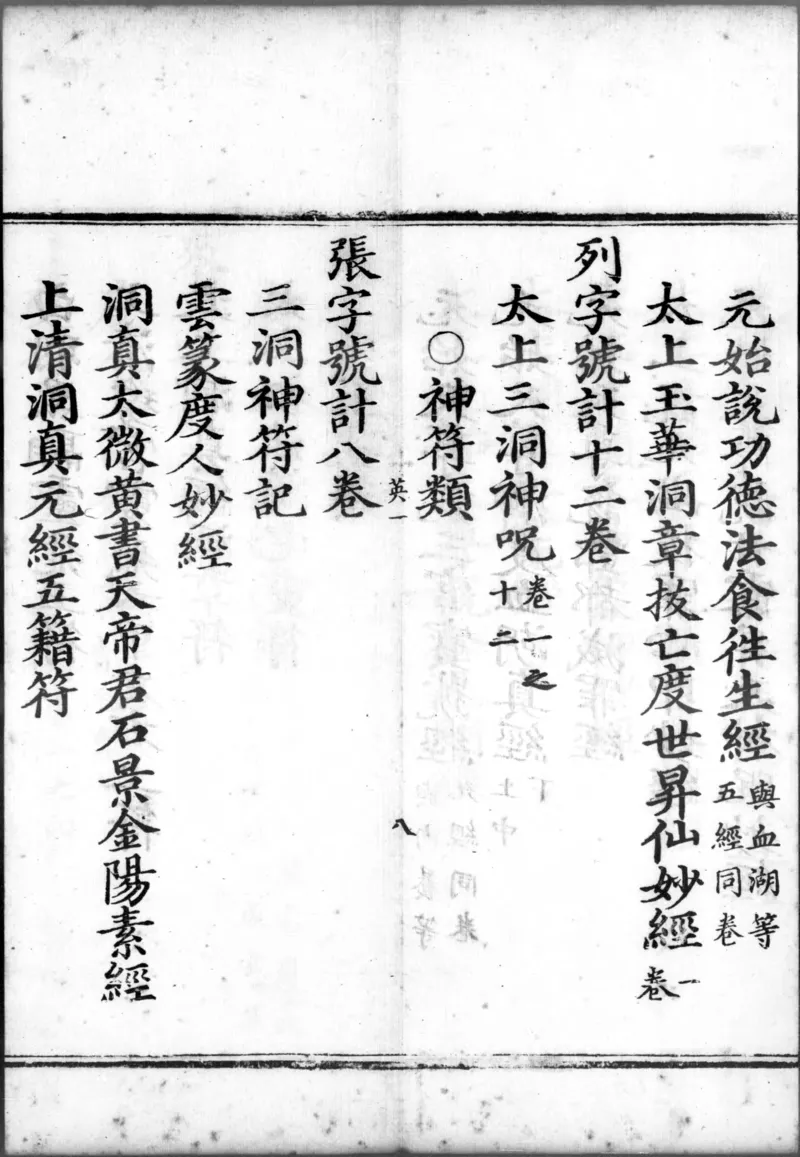 元始說功德法食徃生經與血湖等五經同卷
太上玉華洞章拔亡度世昇仙妙經一卷
列字號計十二卷
太上三洞神呪卷一之十二
○神符類
英一
八
張字號計八卷
三洞神符記
雲篆度人妙經
洞真太微黃書天帝君石景金陽素經
上清洞真元經五籍符